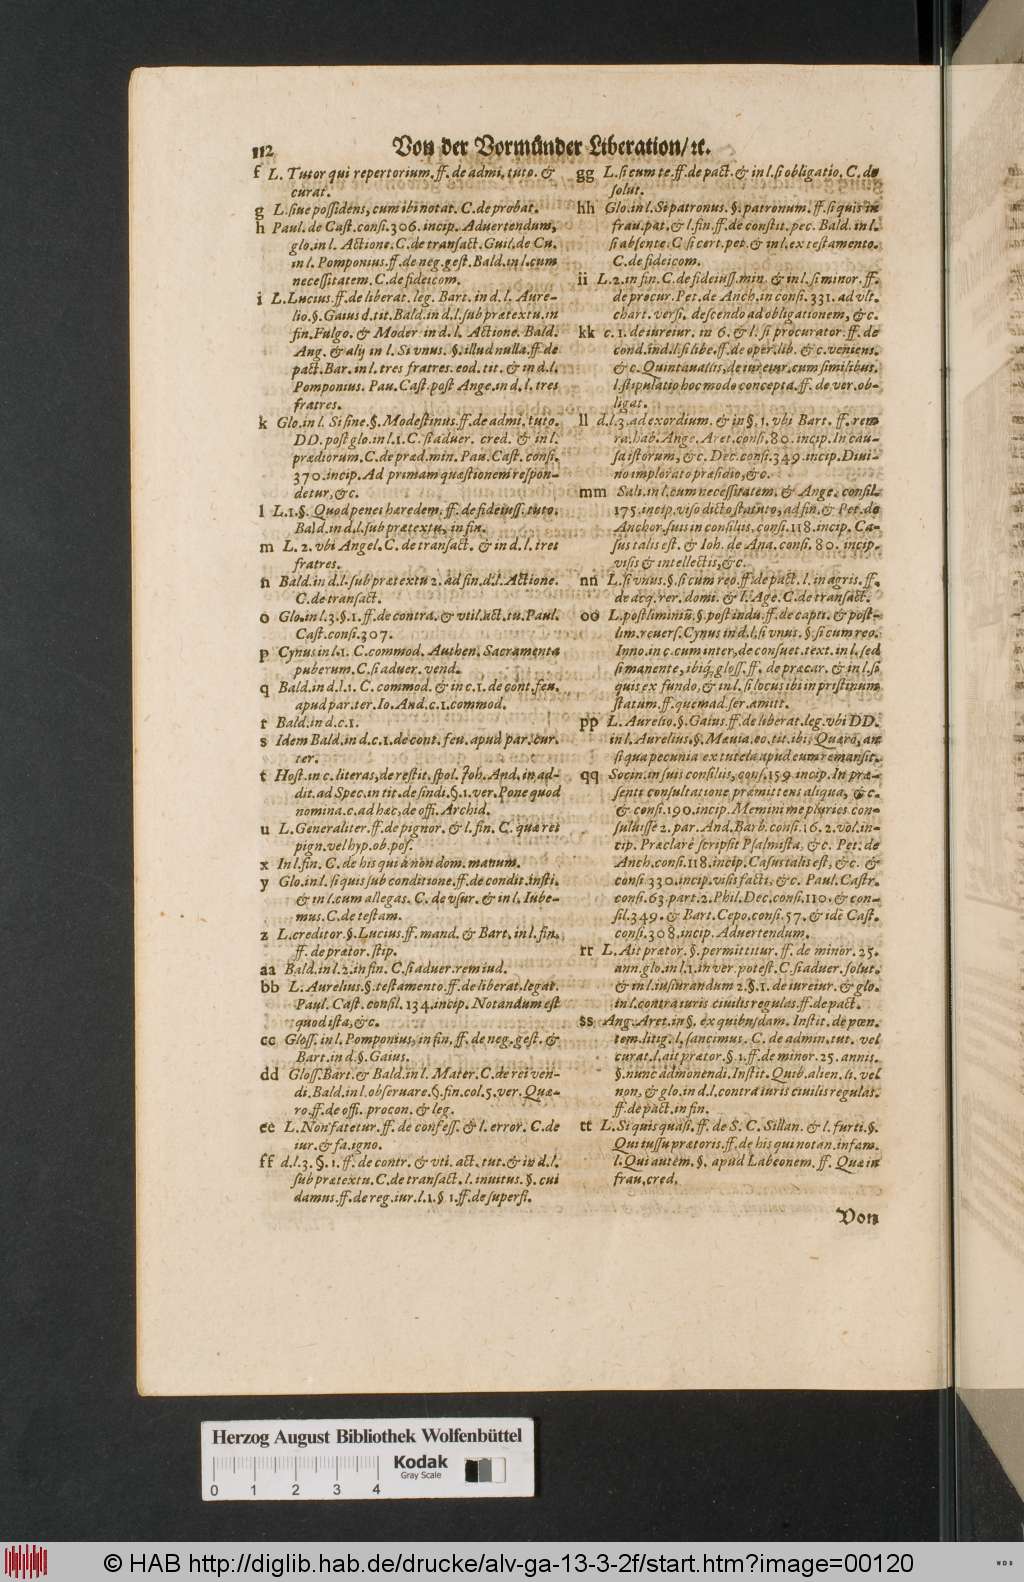 112 Von der Vormünder Liberation/ ꝛc.
f L. Tutor qui repertorium. ff. de admi, tuto. &
curat.
g L. siue possidens, cum ibi notat. C. de probat.
h Paul. de Cast. consi. 306. incip. Aduertendum,
glo. in l. Actione. C. de transact. Guil. de Cu.
in l. Pomponius. ff. de neg. gest. Bald. in l. cum
necessitatem. C. de fideicom.
i L. Lucius. ff. de liberat. leg. Bart. in d. l. Aure-
lio. §. Gaius d. tit. Bald. in d. l. sub prætextu. in
fin. Fulgo. & Moder. in d. l. Actione. Bald.
Ang. & alij in l. Si vnus. §. illud nulla. ff. de
pact. Bar. in l. tres fratres. eod. tit. & in d. l.
Pomponius. Pau. Cast. post Ange. in d. l. tres
fratres.
k Glo. in l. Si sine. §. Modestinus. ff. de admi. tuto.
DD. post glo. in l. 1. C. si aduer. cred. & in l.
prædiorum. C. de præd. min. Pau. Cast. consi.
370. incip. Ad primam quæstionem respon-
detur, &c.
l L. 1. §. Quod penes hæredem. ff. de fideiuss. tuto.
Bald. in d. l. sub prætextu, in fin.
m L. 2. vbi Angel. C. de transact. & in d. l. tres
fratres.
n Bald. in d. l. sub prætextu 2. ad fin. d. l. Actione.
C. de transact.
o Glo. in l. 3. §. 1. ff. de contra. & vtil. act. tu. Paul.
Cast. consi. 307.
p Cynus in l. 1. C. commod. Authen. Sacramenta
puberum. C. si aduer. vend.
q Bald. in d. l. 1. C. commod. & in c. 1. de cont. feu.
apud par. ter. Io. And. c. 1. commod.
r Bald. in d. c. 1.
s Idem Bald. in d. c. 1. de cont. feu. apud par. cur.
ter.
t Host. in c. literas, de restit. spol. Joh. And. in ad-
dit. ad Spec. in tit. de sindi. §. 1. ver. Pone quod
nomina. c. ad hæc, de offi. Archid.
u L. Generaliter. ff. de pignor. & l. fin. C. quæ res
pign. vel hyp. ob. pos.
x In l. fin. C. de his qui à non dom. manum.
y Glo. in l. si quis sub conditione. ff. de condit. insti.
& in l. cum allegas. C. de vsur. & in l. Iube-
mus. C. de testam.
z L. creditor. §. Lucius. ff. mand. & Bart. in l. fin.
ff. de prætor. stip.
aa Bald. in l. 2. in fin. C. si aduer. rem iud.
bb L. Aurelius. §. testamento. ff. de liberat. legat.
Paul. Cast. consil. 134. incip. Notandum est
quod ista, &c.
cc Gloss. in l. Pomponius, in fin, ff. de neg. gest. &
Bart. in d. §. Gaius.
dd Gloss. Bart. & Bald. in l. Mater. C. de rei ven-
di. Bald. in l. obseruare. §. fin. col. 5. ver. Quæ-
ro. ff. de offi. procon. & leg.
ee L. Non fatetur. ff. de confess. & l. error. C. de
iur. & fa. igno.
ff d. l. 3. §. 1. ff. de contr. & vti. act. tut. & in d. l.
sub prætextu. C. de transact. l. inuitus. §. cui
damus. ff. de reg. iur. l. 1. § 1. ff. de superfi.
gg L. si cum te. ff. de pact. & in l. si obligatio. C. de
solut.
hh Glo. in l. Si patronus. §. patronum. ff. si quis in
frau. pat. & l. fin. ff. de constit. pec. Bald. in l.
si absente. C si cert. pet. & in l. ex testamento.
C. de fideicom.
ii L. 2. in fin. C. de fideiuss. min. & in l. si minor. ff.
de procur. Pet. de Anch. in consi. 331. ad vlt.
chart. versi. descendo ad obligationem, &c.
kk c. 1. de iureiur. in 6. & l. si procurator. ff. de
cond. ind. l. si libe. ff. de oper. lib. & c. veniens.
& c. Quintauallis, de iureiur. cum similibus.
l. stipulatio hoc modo concepta. ff. de ver. ob-
ligat.
ll d. l. 3. ad exordium. & in §. 1. vbi Bart. ff. rem
ra. hab. Ange. Aret. consi. 80. incip. In cau-
sa istorum, &c. Dec. consi. 349. incip. Diui-
no implorato præsidio, &c.
mm Sali. in l. cum necessitatem. & Ange. consil.
175. incip. viso dicto statuto, ad fin. & Pet. de
Anchor. suis in consiliis, consi. 118. incip. Ca-
sus talis est. & Ioh. de Ana. consi. 80. incip.
visis & intellectis, &c.
nn L. si vnus. §. si cum reo. ff. de pact. l. in agris. ff.
de acq. rer. domi. & l. Age. C. de transact.
oo L. postliminiũ. §. post indu. ff. de capti. & post-
lim. reuers. Cynus in d. l. si vnus. §. si cum reo.
Inno. in c. cum inter, de consuet. text. in l. sed
si manente, ibiq́. gloss. ff. de precar. & in l. si
quis ex fundo, & in l. si locus ibi in pristinum
statum. ff. quemad. ser. amitt.
pp L. Aurelio. §. Gaius. ff. de liberat. leg. vbi DD.
in l. Aurelius. §. Mæuia. eo. tit. ibi, Quæro, an
si qua pecunia ex tutela apud eum remansit.
qq Socin. in suis consiliis, consi. 159 incip. In præ-
senti consultatione præmittens aliqua, &c.
& consi. 190. incip. Memini me pluries con-
suluisse 2. par. And. Barb. consi. 16. 2. vol. in-
cip. Præclarè scripsit Psalmista, &c. Pet. de
Anch. consi. 118. incip. Casus talis est, &c. &
consi 330. incip. visis facti, &c. Paul. Castr.
consi. 63. part. 2. Phil. Dec. consi. 110. & con-
sil. 349. & Bart. Cepo. consi. 57. & idẽ Cast.
consi. 308. incip. Aduertendum.
rr L. Ait prætor. §. permittitur. ff. de minor. 25.
ann. glo. in l. 1. in ver. potest. C. si aduer. solut.
& in l. iusiurandum 2. §. 1. de iureiur. & glo.
in l. contra iuris ciuilis regulas. ff. de pact.
ss Ang. Aret. in §. ex quibusdam. Instit. de pœn.
tem. litig. l. sancimus. C. de admin. tut. vel
curat. l. ait prætor. §. 1. ff. de minor. 25. annis.
§. nunc admonendi. Instit. Quib. alien. li. vel
non, & glo. in d. l. contra iuris ciuilis regulas.
ff. de pact. in fin.
tt L. Si quis quasi. ff. de S. C. Sillan. & l. furti. §.
Qui iussu prætoris. ff. de his qui notan. infam.
l. Qui autem. §. apud Labeonem. ff. Quæ in
frau. cred.
Von
Herzog August Bibliothek Wolfenbüttel
Kodak
Gray Scale
0 1 2 3 4
© HAB http://diglib.hab.de/drucke/alv-ga-13-3-2f/start.htm?image=00120
WDB